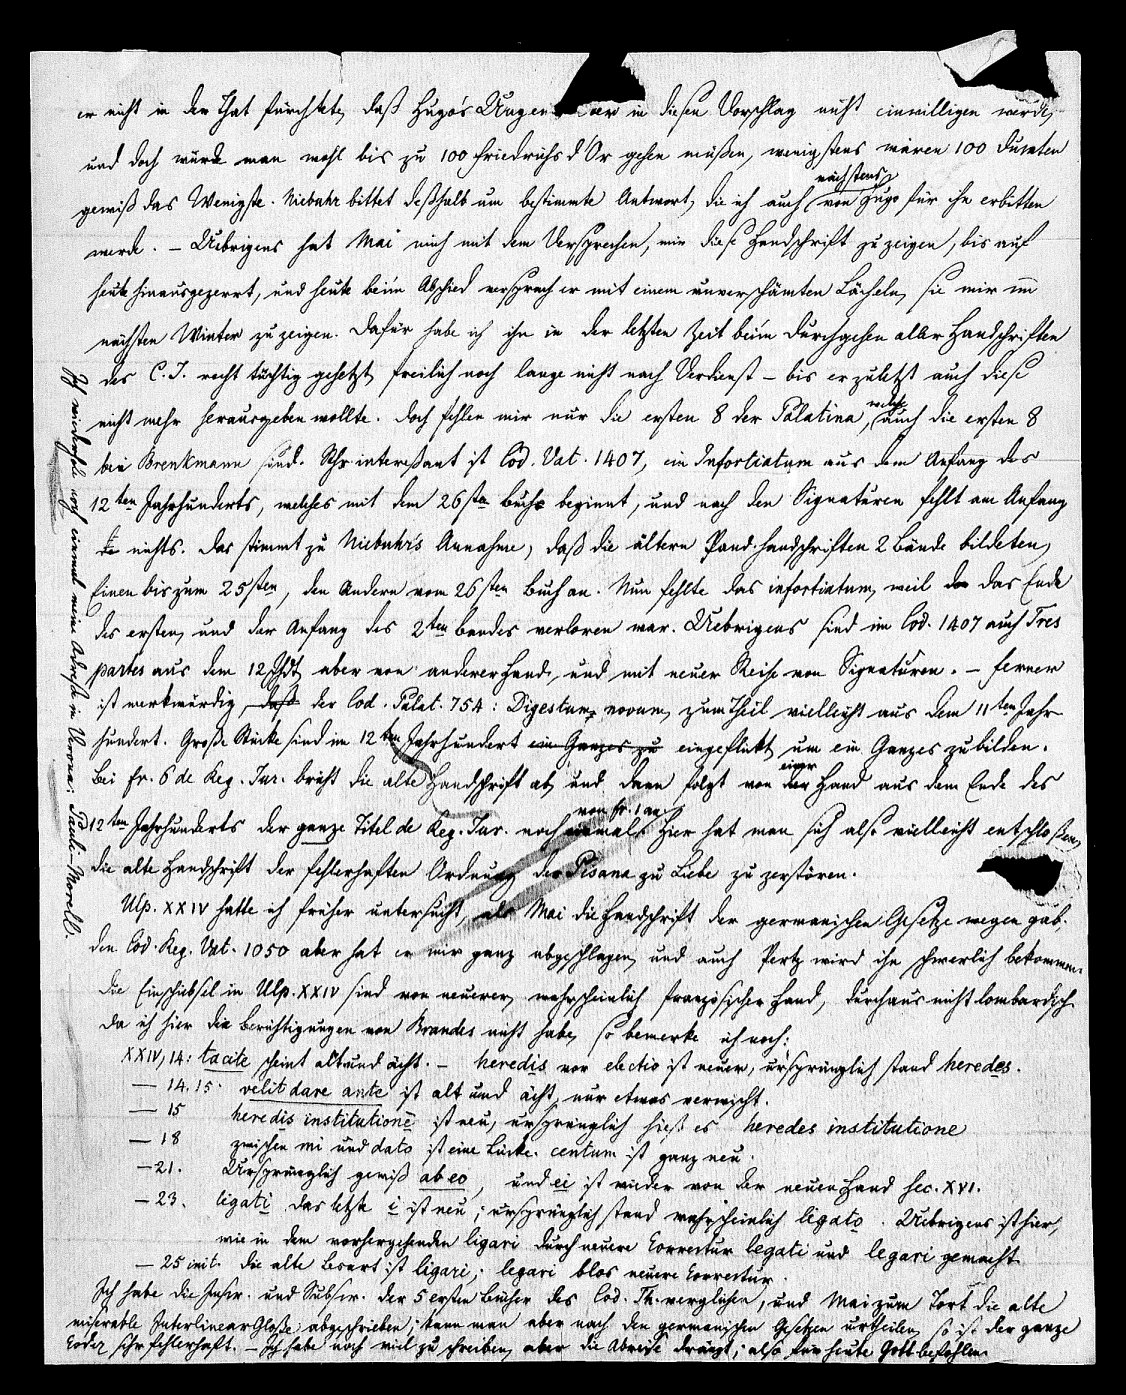 er nicht in der That fürchtete, daß Hugo's in diesen Vorschlag nicht einwilligen würde,
und doch würde man wohl bis zu 100 Friedrichs d'Or gehen müßen, wenigstens wären 100 Ducaten
gewiß das Wenigste. Niebuhr bittet deßhalb um bestimmte Antwort, die ich auch nächstens von Hugo für ihn erbitten
werde. – Uebrigens hat Mai mich mit dem Versprechen, mir diese Handschrift zu zeigen, bis auf
heute hinausgezerrt, und heute beim Abschied versprach er mit einem unverschämten Lächeln, sie mir im
nächsten Winter zu zeigen. Dafür habe ich ihn in der letzten Zeit beim Durchgehen aller Handschriften
des C. J. recht tüchtig gehetzt, freilich noch lange nicht nach Verdienst – bis er zuletzt auch diese
nicht mehr herausgeben wollte. Doch fehlen mir nur die ersten 8 der Palatina, welche auch die ersten 8
bei Brenkmann sind. Sehr interessant ist Cod. Vat. 1407, ein Infortiatum aus dem Anfang des
12ten Jahrhunderts, welches mit dem 26sten Buche beginnt, und nach den Signaturen fehlt am Anfang
nichts. Das stimmt zu Niebuhr's Annahme, daß die ältern Pand. handschriften 2 Bände bildeten,
Einen bis zum 25sten, den Andern vom 26sten Buch an. Nun fehlte das infortiatum, weil das Ende
des ersten, und der Anfang des 2ten Bandes verloren war. Uebrigens sind im Cod. 1407 auch Tres
partes aus dem 12 Jhdt, aber von anderer Hand, und mit neuer Reihe von Signaturen. – Ferner
ist merkwürdig daß der Cod. Palat. 754: Digestum novum, zum Theil vielleicht aus dem 11ten Jahr-
hundert. Große Stücke sind im 12ten Jahrhundert ein Ganzes zu eingeflickt, um ein Ganzes zu bilden.
Bei fr. 6 de Reg. Jur. bricht die alte Handschrift ab, und dann folgt von einer Hand aus dem Ende des
12ten Jahrhunderts der ganze Titel de Reg. Jur. noch einmal von fr. 1 an. Hier hat man sich also vielleicht entschloßen,
die alte Handschrift der fehlerhaften Ordnung der Pisana zu Liebe zu zerstören.
Ulp. XXIV hatte ich früher untersucht, als Mai die Handschrift der germanischen Gesetze wegen gab.
Den Cod. Reg. Vat. 1050 aber hat er mir ganz abgeschlagen, und auch Pertz wird ihn schwerlich bekommen.
Die Einschiebsel in Ulp. XXIV sind von neuerer, wahrscheinlich französischer Hand, durchaus nicht lombardisch
Da ich hier die Berichtigungen von Brandes nicht habe, so bemerke ich noch:
XXIV, 14: tacite scheint alt und ächt. – heredis vor electio ist neuer, ursprünglich stand heredes.
— 14. 15. velit dare ante ist alt und ächt, nur etwas verwischt.
— 15 heredis institutione ist neu, ursprünglich hieß es heredes institutione
— 18 zwischen mi und dato ist eine Lücke. centum ist ganz neu.
— 21. Ursprünglich gewiß ab eo, und ei ist wieder von der neuen Hand sec. XVI.
— 23. legati das letzte i ist neu; ursprünglich stand wahrscheinlich ligato. Uebrigens ist hier,
wie in dem vorhergehenden ligari durch neuere Correctur legati und legari gemacht.
— 25 init. Die alte Lesart ist ligari; legari blos neuere Correctur.
Ich habe die Inscr. und Subscr. der 5 ersten Bücher des Cod. Th. verglichen, und Mai zum Tort die alte
miserable Interlinear Gloße abgeschrieben; kann man aber nach den germanischen Gesetzen urtheilen, so ist der ganze
Codex sehr fehlerhaft. – Ich habe noch viel zu schreiben, aber die Abreise drängt; also für heute Gott befohlen.
Ich wiederhole noch einmal meine Adresse in Verona: Pauli-Morell.